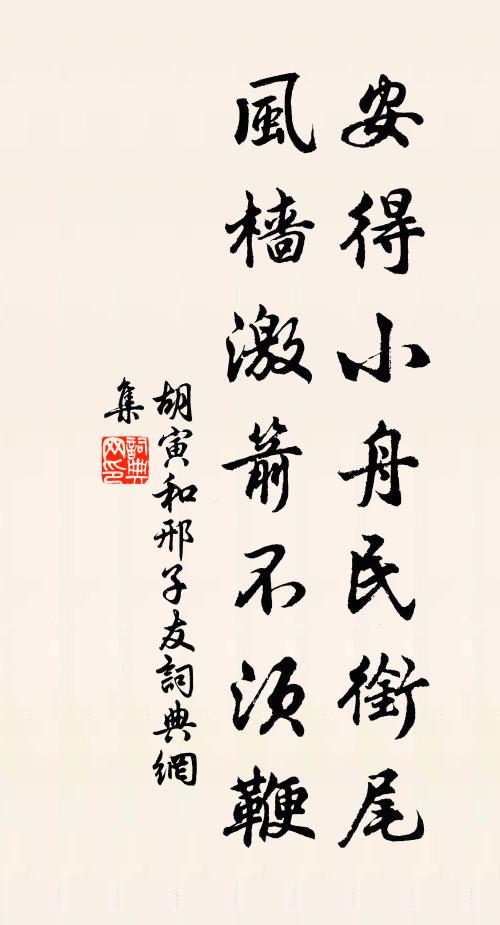 安得小舟民銜尾
風檣激箭不須鞭
胡寅和邢子友詞典網
集
詞典網印